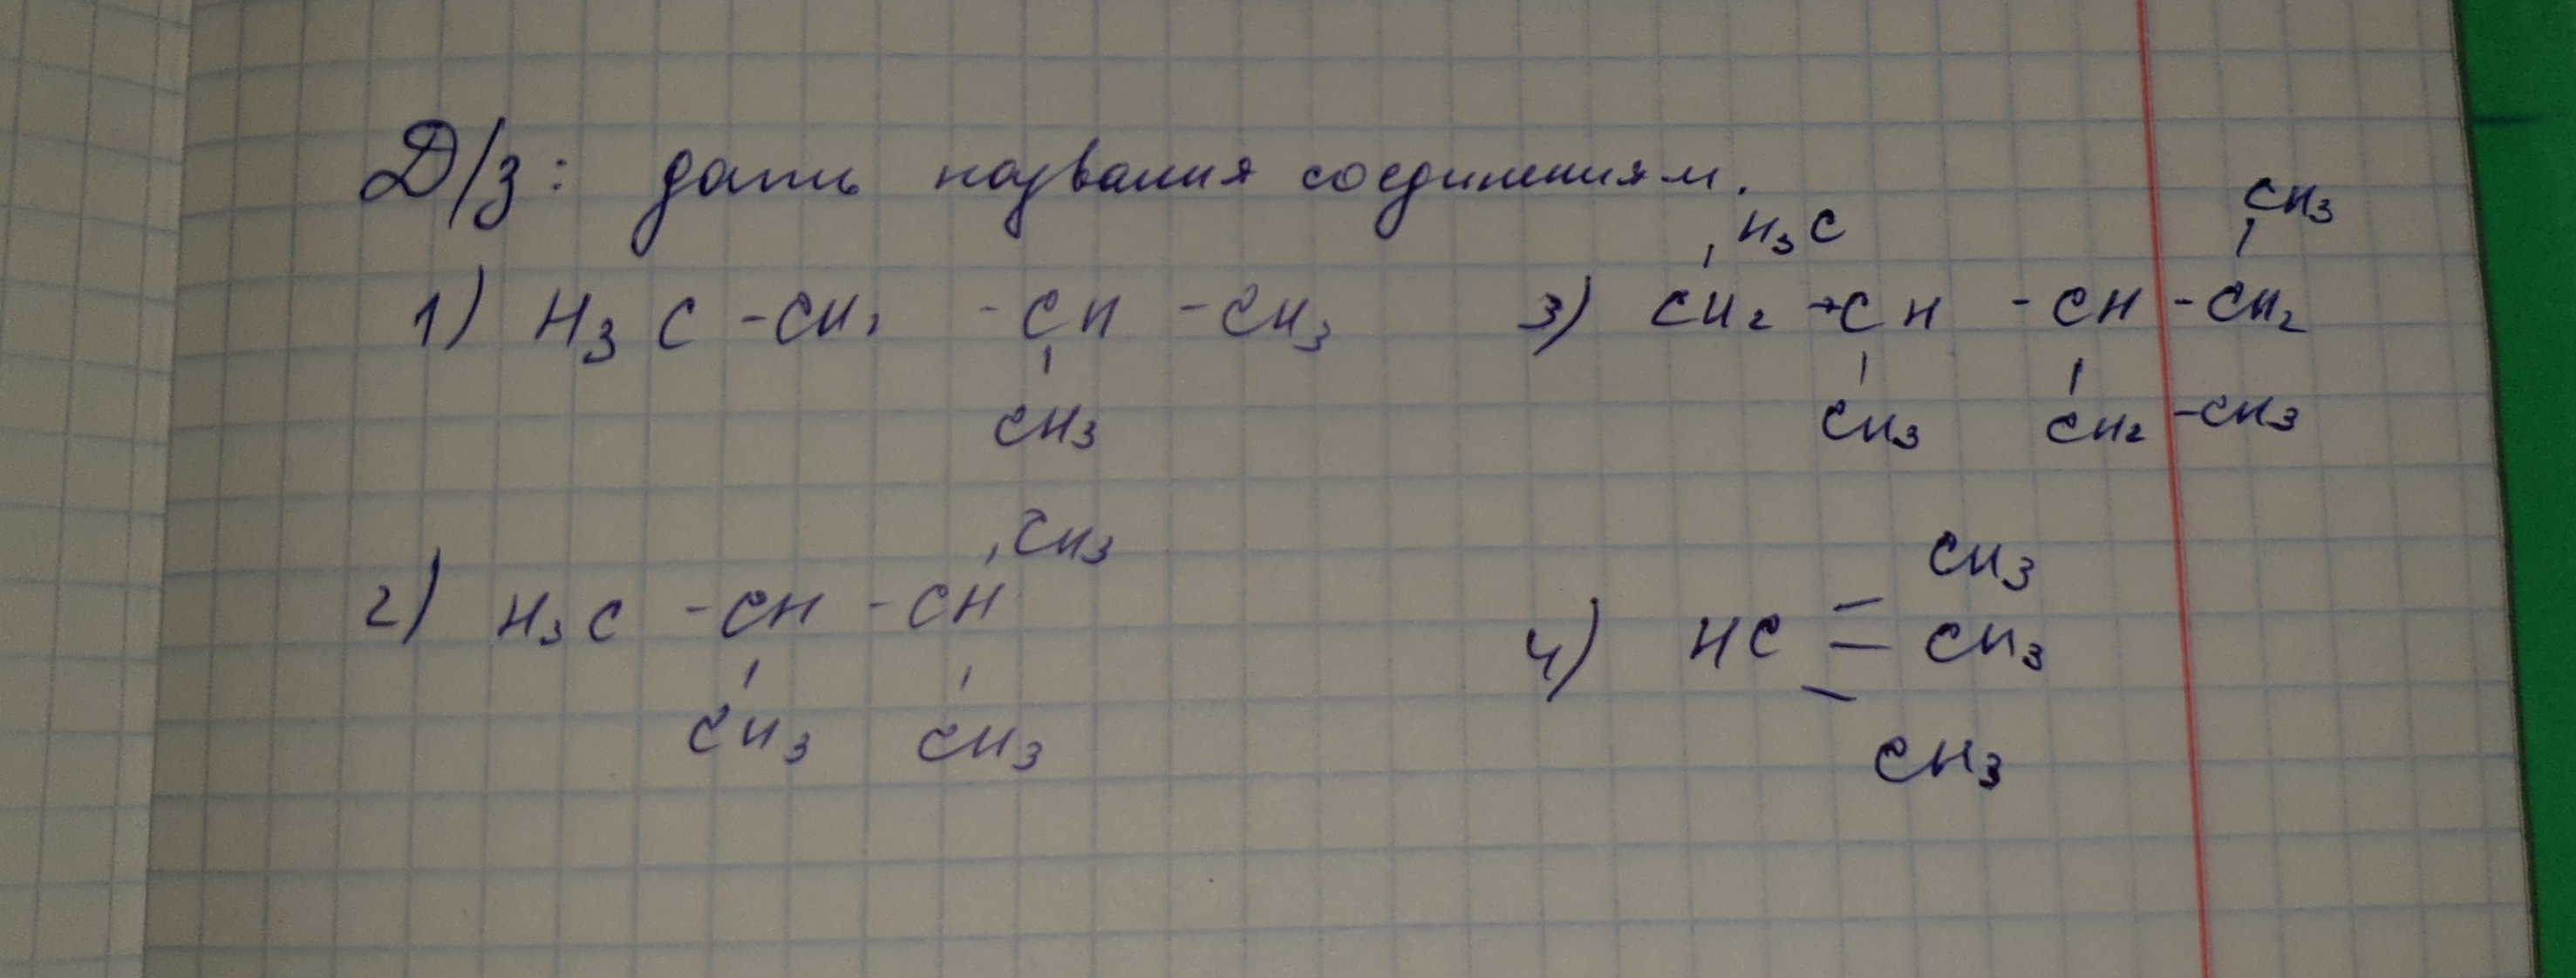 Д/з: дать названия соединениям.
1) H3C - CH2 - CH - CH3
CH3
H3C CH3
3) CH2 - CH - CH - CH2
CH3 CH2 - CH3
CH3
2) H3C - CH - CH
CH3 CH3
CH3
4) HC - CH3
CH3